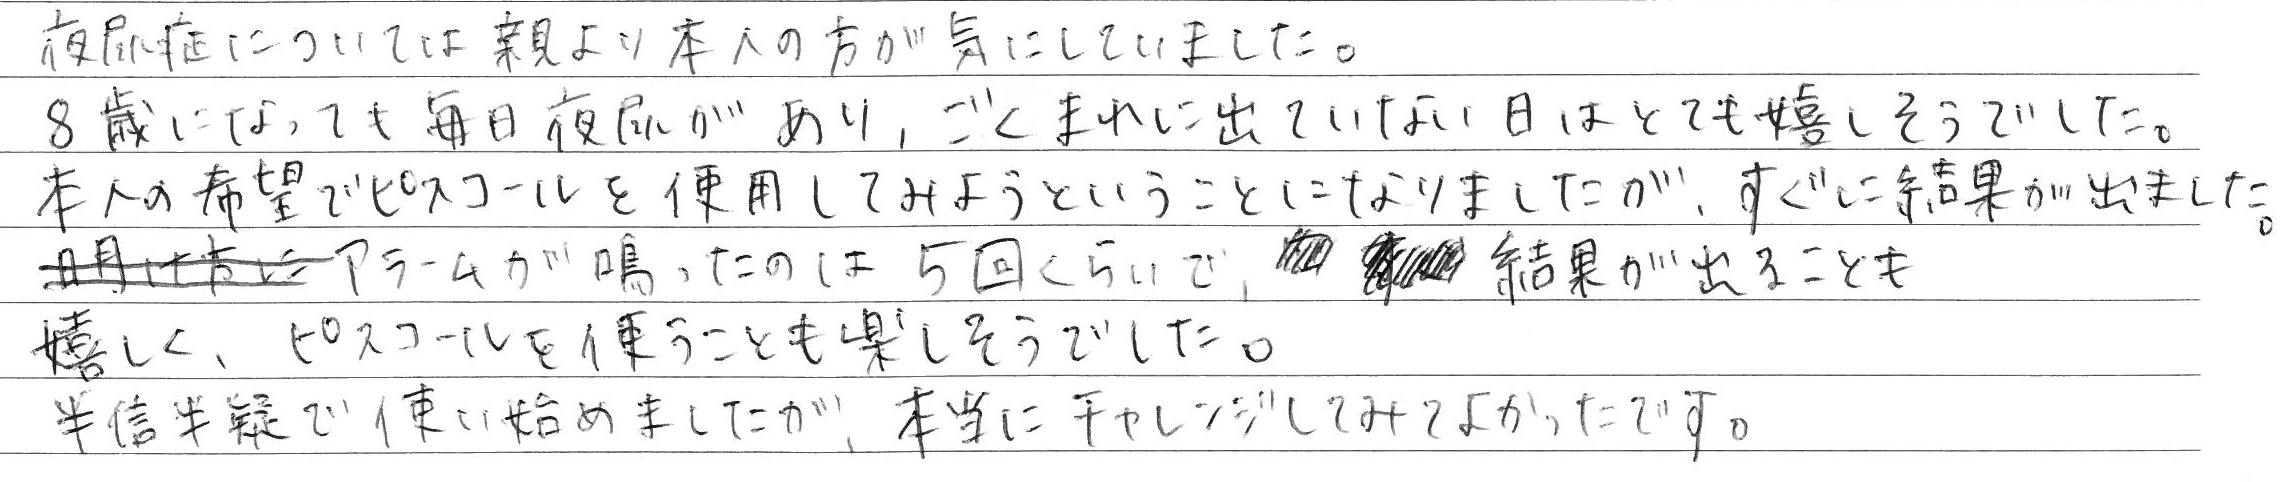 夜尿症については親より本人の方が気にしていました。
8歳になっても毎日夜尿があり、ごくまれに出ていない日はとても嬉しそうでした。
本人の希望でピスコールを使用してみようということになりましたが、すぐに結果が出ました。
アラームが鳴ったのは5回くらいで、結果が出ることも
嬉しく、ピスコールを使うことも楽しそうでした。
半信半疑で使い始めましたが、本当にチャレンジしてみてよかったです。